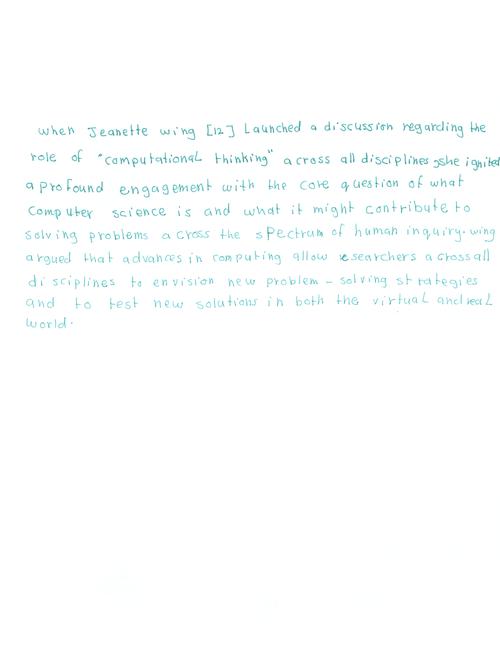 when Jeanette wing [12] Launched a discussion regarding the
role of "computational thinking" across all disciplines, she ignited
a profound engagement with the core question of what
Computer science is and what it might contribute to
solving problems across the spectrum of human inquiry. wing
argued that advances in computing allow researchers across all
disciplines to envision new problem - solving strategies
and to test new solutions in both the virtual and real
world.